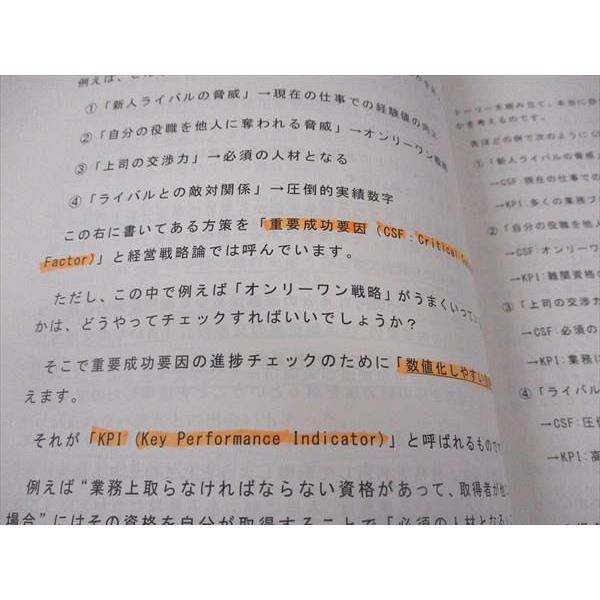 例えば、
①「新人ライバルの脅威」→現在の仕事での経験値の向上
②「自分の役職を他人に奪われる脅威」→オンリーワン戦略
③「上司の交渉力」→必須の人材となる
④「ライバルとの敵対関係」→圧倒的実績数字
この右に書いてある方策を「重要成功要因（CSF：Critical
Factor）」と経営戦略論では呼んでいます。
ただし、この中で例えば「オンリーワン戦略」がうまくいって
かは、どうやってチェックすればいいでしょうか？
そこで重要成功要因の進捗チェックのために「数値化しやすい
えます。
それが「KPI（Key Performance Indicator）」と呼ばれるものです
例えば“業務上取らなければならない資格があって、取得者が他に
場合”にはその資格を自分が取得することで「必須の人材となる
トーリーを組み立て、本当に自
かを考えるのです。
先ほどの例で次のように
①「新人ライバルの脅威」
→CSF：現在の仕事での
→KPI：多くの業務プ
②「自分の役職を他人
→CSF：オンリーワ
→KPI：難関資格の
③「上司の交渉力」
→CSF：必須の
→KPI：業務に
④「ライバル
→CSF：圧
→KPI：高